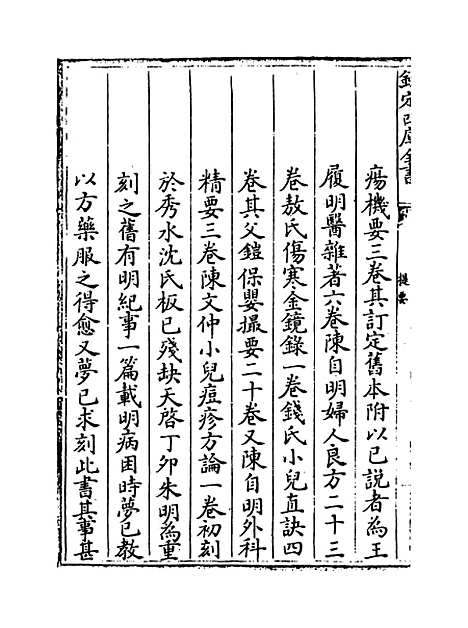 欽定四庫全書
提要
瘍機要三卷其訂定舊本附以已說者為王
履明醫雜著六卷陳自明婦人良方二十三
卷敖氏傷寒金鏡錄一卷錢氏小兒直訣四
卷其父鎧保嬰撮要二十卷又陳自明外科
精要三卷陳文仲小兒痘疹方論一卷初刻
於秀水沈氏板已殘缺天啓丁卯朱明為重
刻之舊有明紀事一篇載明病困時夢已教
以方藥服之得愈又夢已求刻此書其事甚